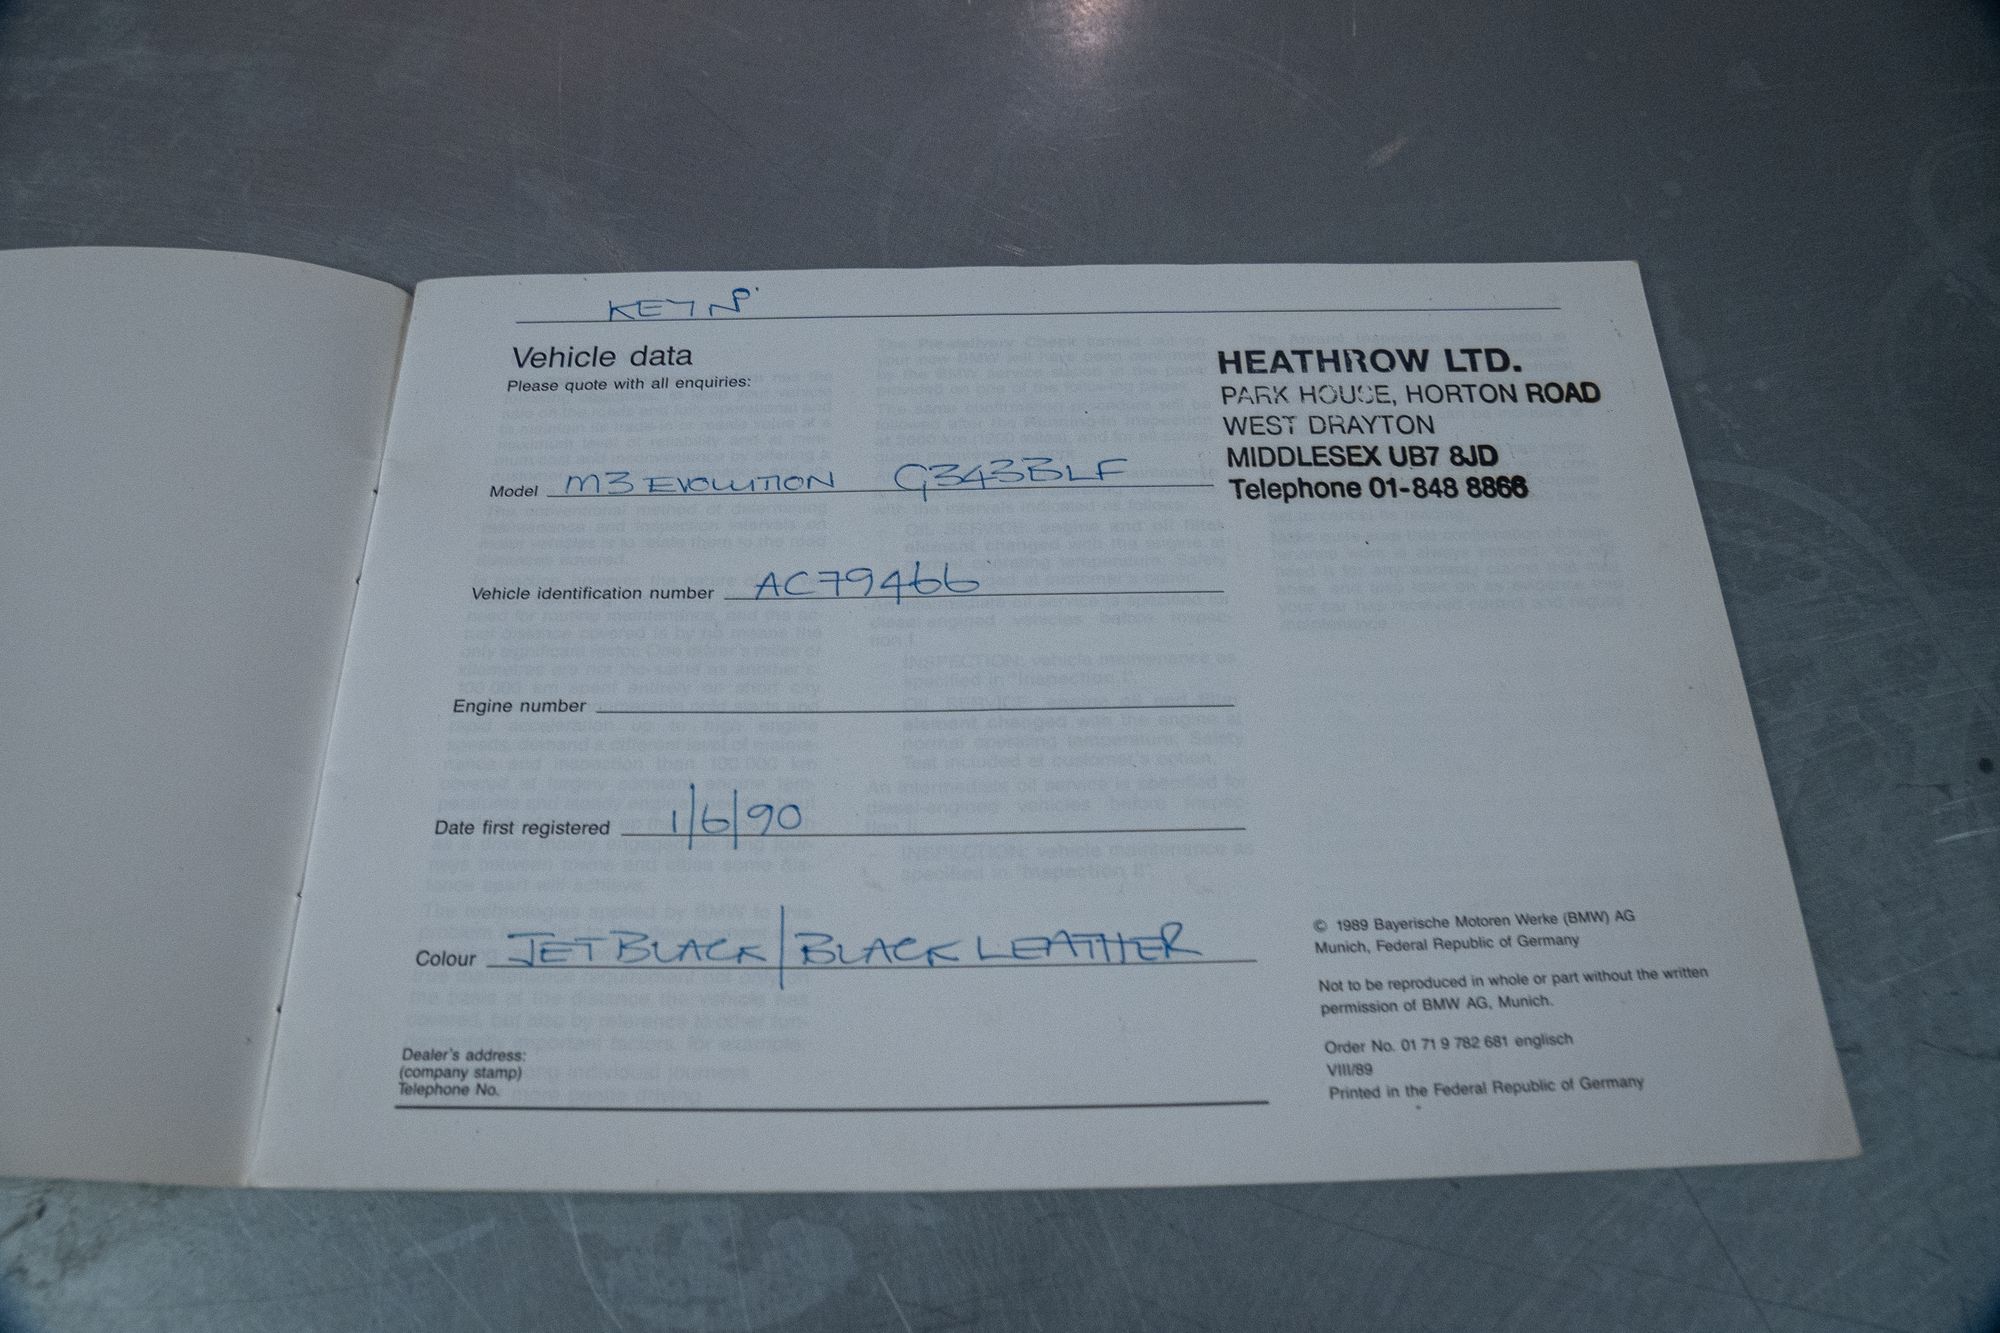 KEY No.
Vehicle data
Please quote with all enquiries:
HEATHROW LTD.
PARK HOUSE, HORTON ROAD
WEST DRAYTON
MIDDLESEX UB7 8JD
Telephone 01-848 8866
Model M3 EVOLUTION G343BLF
Vehicle identification number AC79466
Engine number
Date first registered 1/6/90
Colour JET BLACK / BLACK LEATHER
Dealer's address:
(company stamp)
Telephone No.
© 1989 Bayerische Motoren Werke (BMW) AG
Munich, Federal Republic of Germany
Not to be reproduced in whole or part without the written
permission of BMW AG, Munich.
Order No. 01 71 9 782 681 englisch
VIII/89
Printed in the Federal Republic of Germany